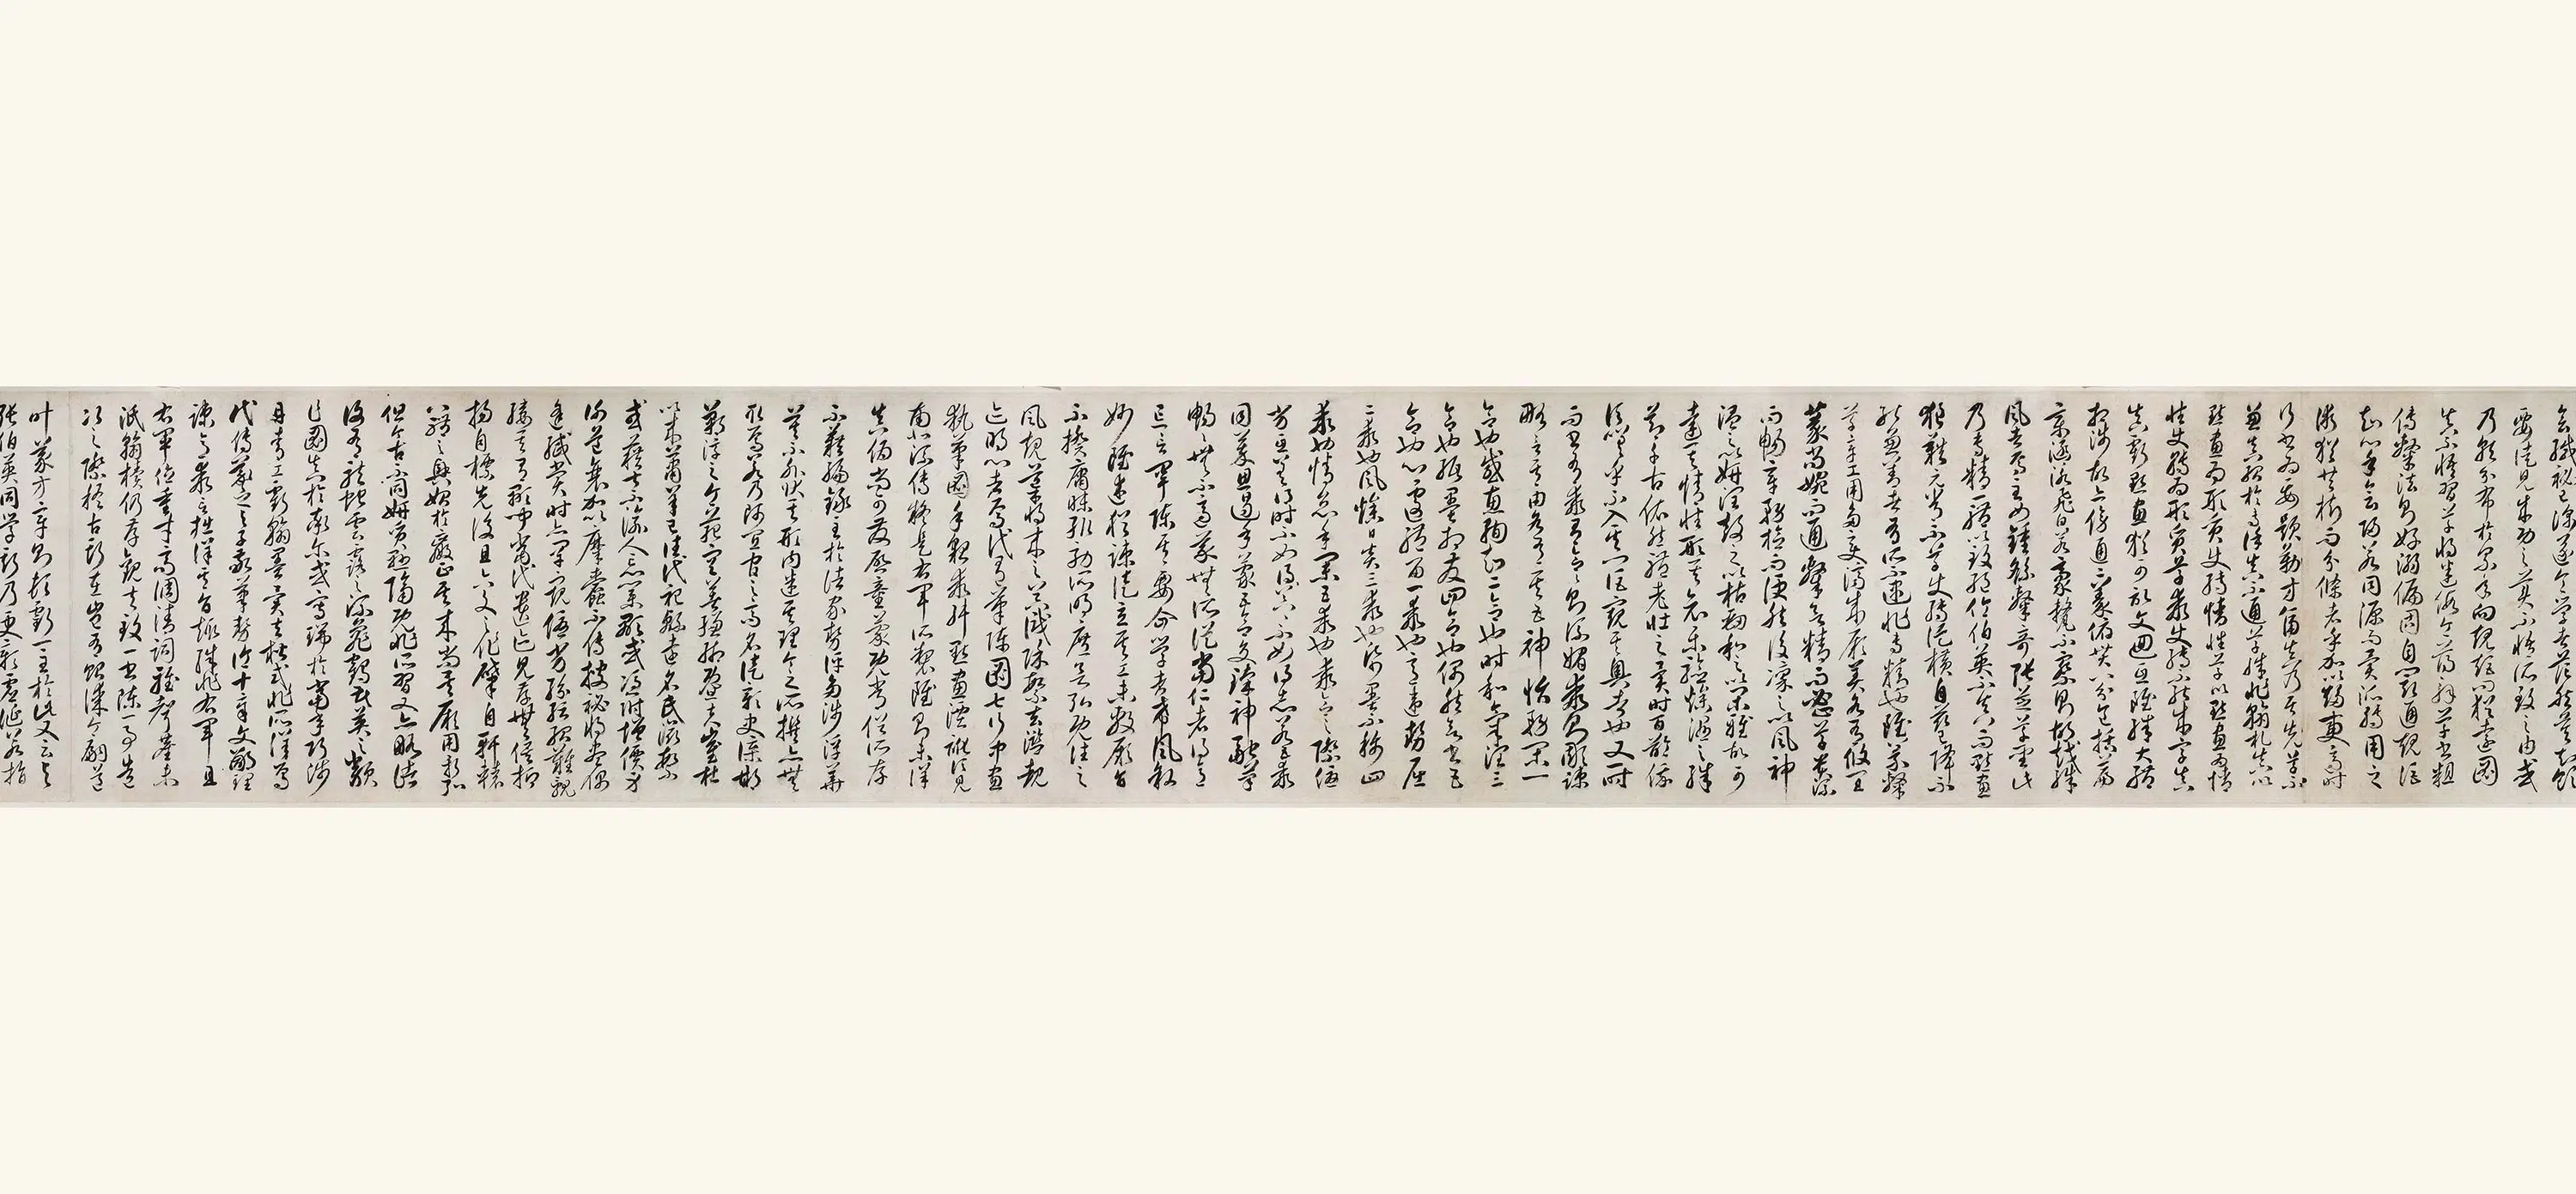 會緘秘已深遂令學者茫然莫知領
要徒見成功之美不悟所致之由或
乃就分布於累年向規矩而猶遠圖
真不悟習草將迷假令薄解草書粗
傳隸法則好溺偏固自閡通規詎
知心手會歸若同源而異派轉用之
術猶共樹而分條者乎加以趨變適時
行書為要題勒方畐真乃居先草不
兼真殆於專謹真不通草殊非翰札真以
點畫為形質使轉為情性草以點畫為情
性使轉為形質草乖使轉不能成字真
虧點畫猶可記文迴互雖殊大體
相涉故亦傍通二篆俯貫八分包括篇
章涵泳飛白若豪氂不察則胡越殊
風者焉至如鍾繇隸奇張芝草聖此
乃專精一體以致絕倫伯英不真而點畫
狼藉元常不草使轉縱橫自茲已降不
能兼善者有所不逮非專精也雖篆隸
草章工用多變濟成厥美各有攸宜
篆尚婉而通隸欲精而密草貴流
而暢章務檢而便然後凜之以風神
溫之以妍潤鼓之以枯勁和之以閑雅故可
達其情性形其哀樂驗燥濕之殊
節千古依然體老壯之異時百齡俄
頃嗟乎不入其門詎窺其奧者也又一時
而書有乖有合合則流媚乖則彫疎
略言其由各有其五神怡務閑一
合也感惠徇知二合也時和氣潤三
合也紙墨相發四合也偶然欲書五
合也心遽體留一乖也意違勢屈
二乖也風燥日炎三乖也紙墨不稱四
乖也情怠手闌五乖也乖合之際優
劣互差得時不如得器得器不如得志若五乖
同萃思遏手蒙五合交臻神融筆
暢暢無不適蒙無所從當仁者得意
忘言罕陳其要企學者希風敘
妙雖述猶疎徒立其工未敷厥旨
不揆庸昧輒效所明庶欲弘既往之
風規導將來之器識除繁去濫覩
迹明心者焉代有筆陣圖七行中畫
執筆三手圖貌乖舛點畫湮訛頃見
南北流傳疑是右軍所製雖則未詳
真偽尚可發啟童蒙既常俗所存
不藉編錄至於諸家勢評多涉浮華
莫不外狀其形內迷其理今之所撰亦無
取焉若乃師宜官之高名徒彰史牒邯
鄲淳之令範空著縑緗暨乎崔杜
以來蕭羊已往代祀綿遠名氏滋繁
或藉甚不渝人亡業顯或憑附增價身
謝道衰加以糜蠹不傳搜秘將盡偶
逢緘賞時亦罕窺優劣紛紜殆難覼
縷其有顯聞當代遺迹見存無俟抑
揚自標先後且六文之作肇自軒轅
八體之興始於嬴正其來尚矣厥用斯弘
但今古不同妍質懸隔既非所習又亦略諸
復有龍蛇雲露之流龜鶴花英之類
乍圖真於率爾或寫瑞於當年巧涉
丹青工虧翰墨異夫楷式非所詳焉
代傳羲之與子敬筆勢論十章文鄙理
疎意乖言拙詳其旨趣殊非右軍且
右軍位重才高調清詞雅聲塵未
泯翰牘仍存觀夫致一書陳一事造
次之際稽古斯在豈有貽謀令嗣道
叶義方章則頓虧一至於此又云與
張伯英同學斯乃更彰虛誕若指